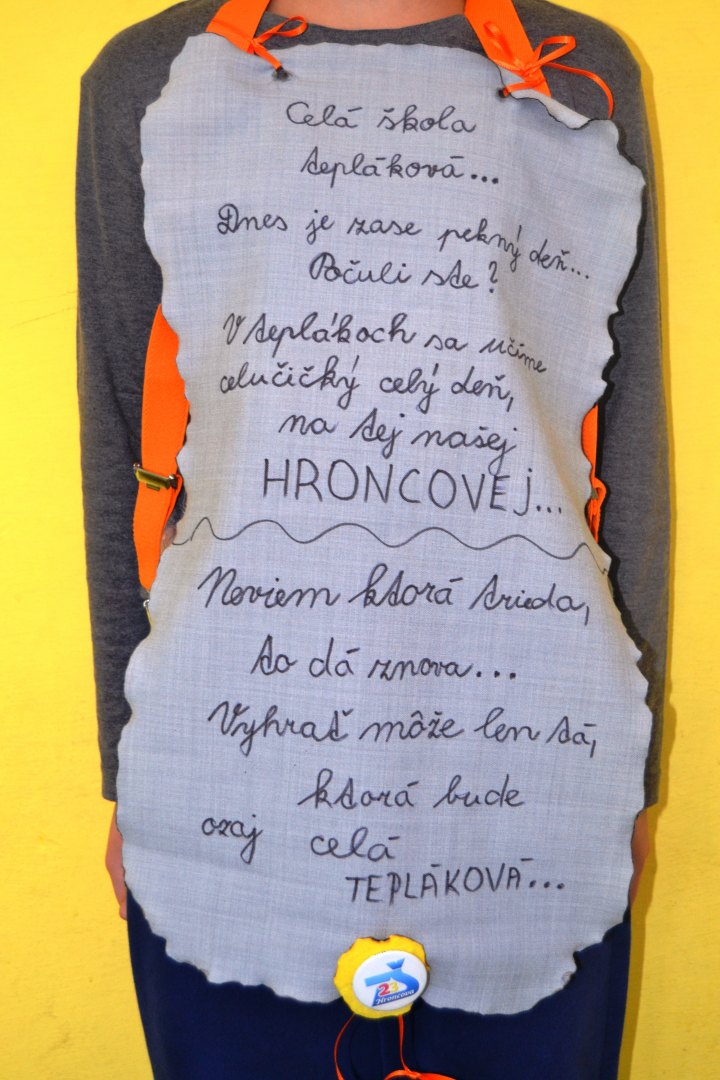 Celá škola
tepláková...
Dnes je zase pekný deň...
Počuli ste?
V teplákoch sa učíme
celučičký celý deň,
na tej našej
HRONCOVEJ...
Neviem ktorá trieda,
to dá znova...
Vyhrať môže len tá,
ktorá bude
ozaj celá
TEPLÁKOVÁ...
ZŠ
23
Hroncova